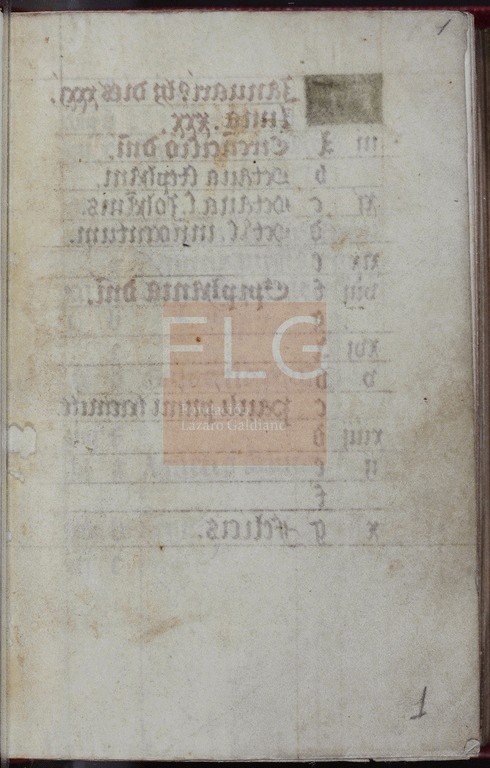 1
Januari9 hz dies xxxi.
Luna. xxx.
iii A Circucisio dni.
b octaua stephani.
xi c octaua s. Johanis.
d oct. s. innocentum.
xix e
viii f Epiphania dni.
g
xvi
v b
c pauli primi
xiii d
ii e
f
x g Felicis.
FLG
Fundación
Lázaro Galdiano
1